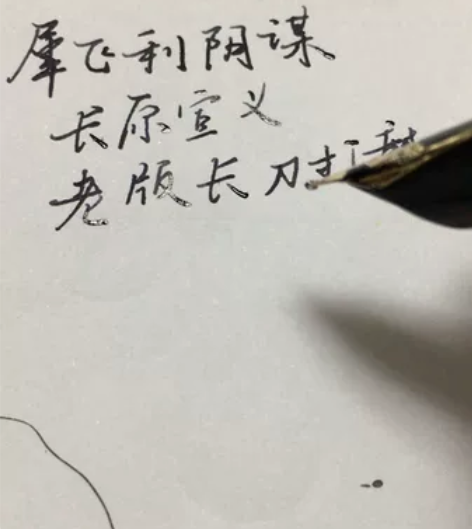 犀飞利阴谋
长原宣义
老版长刀打